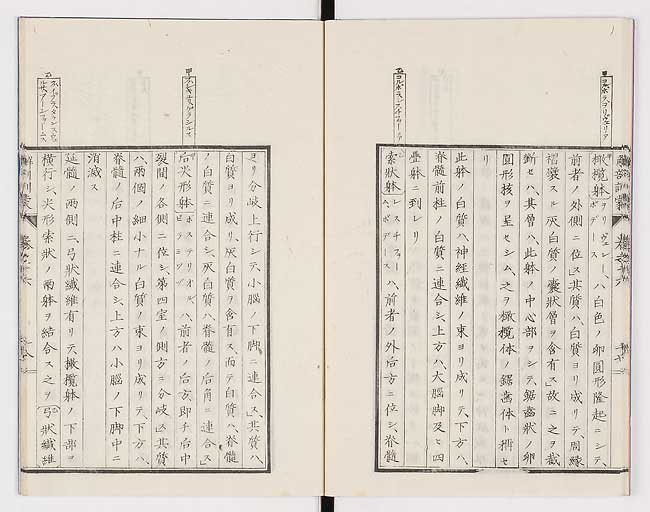 橄欖躰〔ヲリヴェレーボデース〕ハ白色ノ卵圓形隆起ニシテ、
前者ノ外側ニ位ス其質ハ、白質ヨリ成リテ、周縁
褶襞スル灰白質ノ囊狀層ヲ含有ス故ニ之ヲ截
斷セハ、其層ハ、此躰ノ中心部ヲシテ、鋸齒狀ノ卵
圓形核ヲ呈セシム、之ヲ橄欖体ノ鋸齒体ト稱セ
リ
此躰ノ白質ハ神経纖維ノ束ヨリ成リテ、下方ハ、
脊髓前柱ノ白質ニ連合シ、上方ハ、大脳脚及ヒ四
疊躰ニ到レリ
索狀躰〔レスチフォームボデース〕ハ、前者ノ外后方ニ位シ、脊髓
ヨリ分岐上行シテ小脳ノ下脚ニ連合ス、其質ハ、
白質ヨリ成リ、灰白質ヲ含有ス、而テ白質ハ、脊髓
ノ白質ニ連合シ、灰白質ハ、脊髓ノ后角ニ連合ス
后尖形躰〔ポステリオルピラミッヅ〕ハ、前者ノ后方即チ后中
裂間ノ各側ニ位シ、第四室ノ側方ニ分岐ス其質
ハ、兩個ノ細小ナル白質ノ束ヨリ成リテ、下方ハ、
脊髓ノ后中柱ニ連合シ、上方ハ小脳ノ下脚中ニ
消滅ス
延髓ノ兩側ニ、弓狀纖維有リテ、橄欖躰ノ下部ヲ
橫行シ、尖形索狀ノ兩躰ヲ結合ス之ヲ〔弓狀纖維